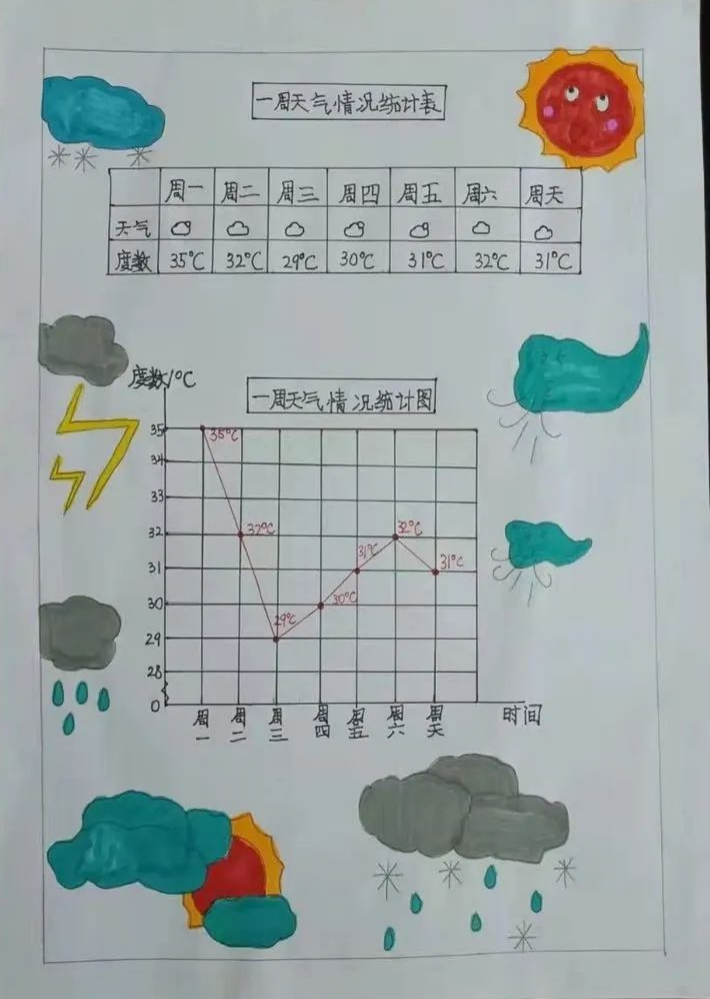 一周天气情况统计表
周一 周二 周三 周四 周五 周六 周天
天气
度数 35°C 32°C 29°C 30°C 31°C 32°C 31°C
度数/°C
一周天气情况统计图
35 35°C
34
33
32 32°C 32°C
31 31°C 31°C
30 30°C
29 29°C
28
0
周一 周二 周三 周四 周五 周六 周天 时间